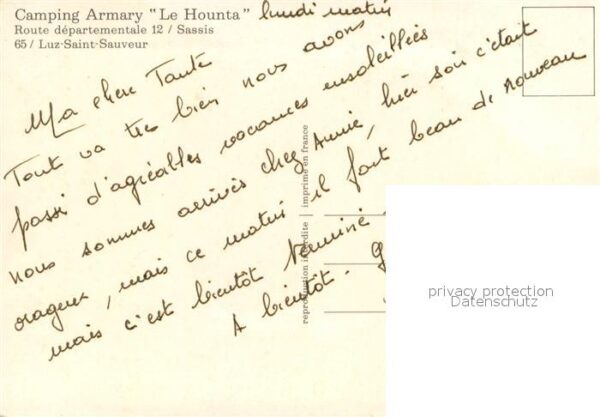 Camping Armary "Le Hounta"
Route départementale 12 / Sassis
65 / Luz-Saint-Sauveur
lundi matin
Ma chere Tante
Tout va tres bien nous avons
passé d'agréables vacances ensoleillées
nous sommes arrivés chez Annie, hier soir c'était
orageux, mais ce matin il fait beau de nouveau
mais c'est bientôt terminé
A bientôt -
reproduction interdite
imprimé en france
privacy protection
Datenschutz